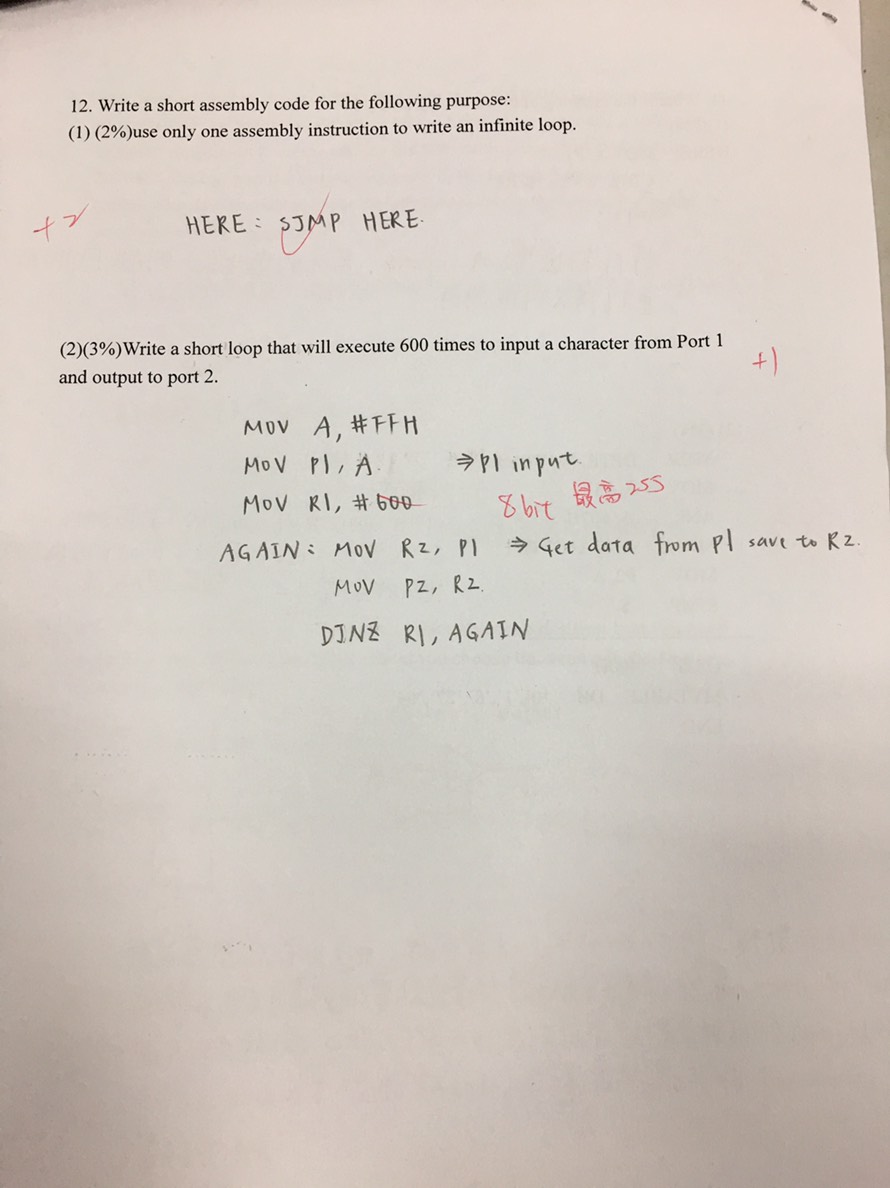 12. Write a short assembly code for the following purpose:
(1) (2%)use only one assembly instruction to write an infinite loop.
+2 HERE: SJMP HERE.
(2)(3%)Write a short loop that will execute 600 times to input a character from Port 1
and output to port 2.
+1
MOV A, #FFH
MOV P1, A. ⇒ P1 input.
MOV R1, #600 8 bit 最高 255
AGAIN: MOV R2, P1 ⇒ Get data from P1 save to R2.
MOV P2, R2.
DJNZ R1, AGAIN